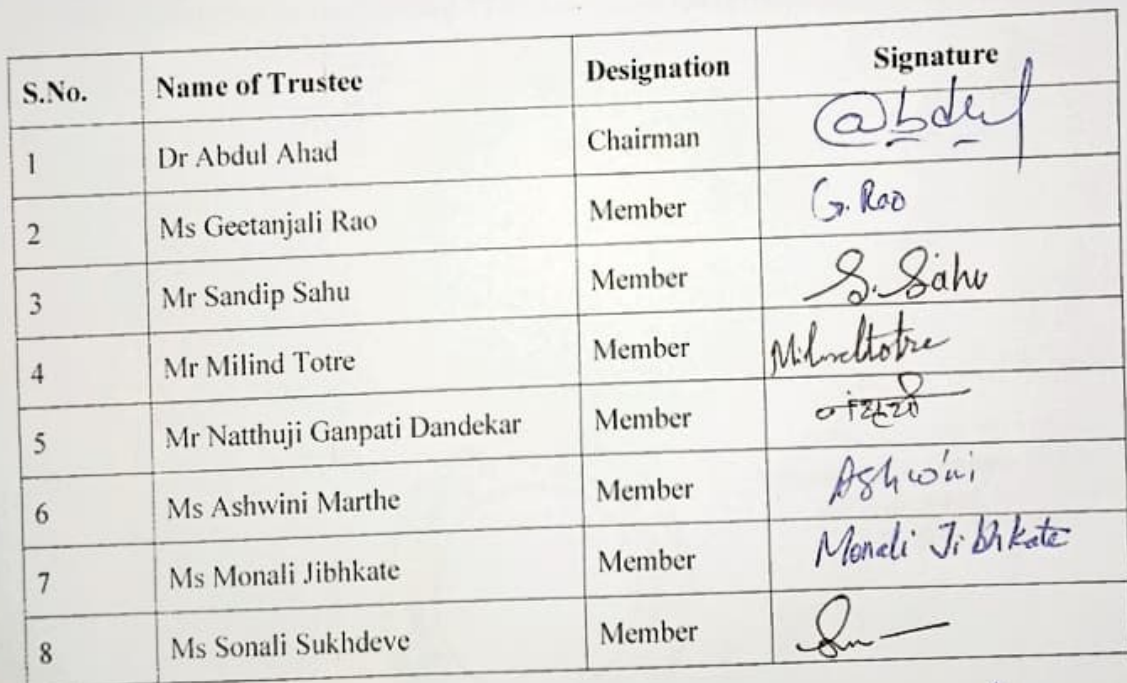 S.No. Name of Trustee Designation Signature
1 Dr Abdul Ahad Chairman @bdul
2 Ms Geetanjali Rao Member G. Rao
3 Mr Sandip Sahu Member S. Sahu
4 Mr Milind Totre Member Milindtotre
5 Mr Natthuji Ganpati Dandekar Member
6 Ms Ashwini Marthe Member Ashwini
7 Ms Monali Jibhkate Member Monali Jibhkate
8 Ms Sonali Sukhdeve Member